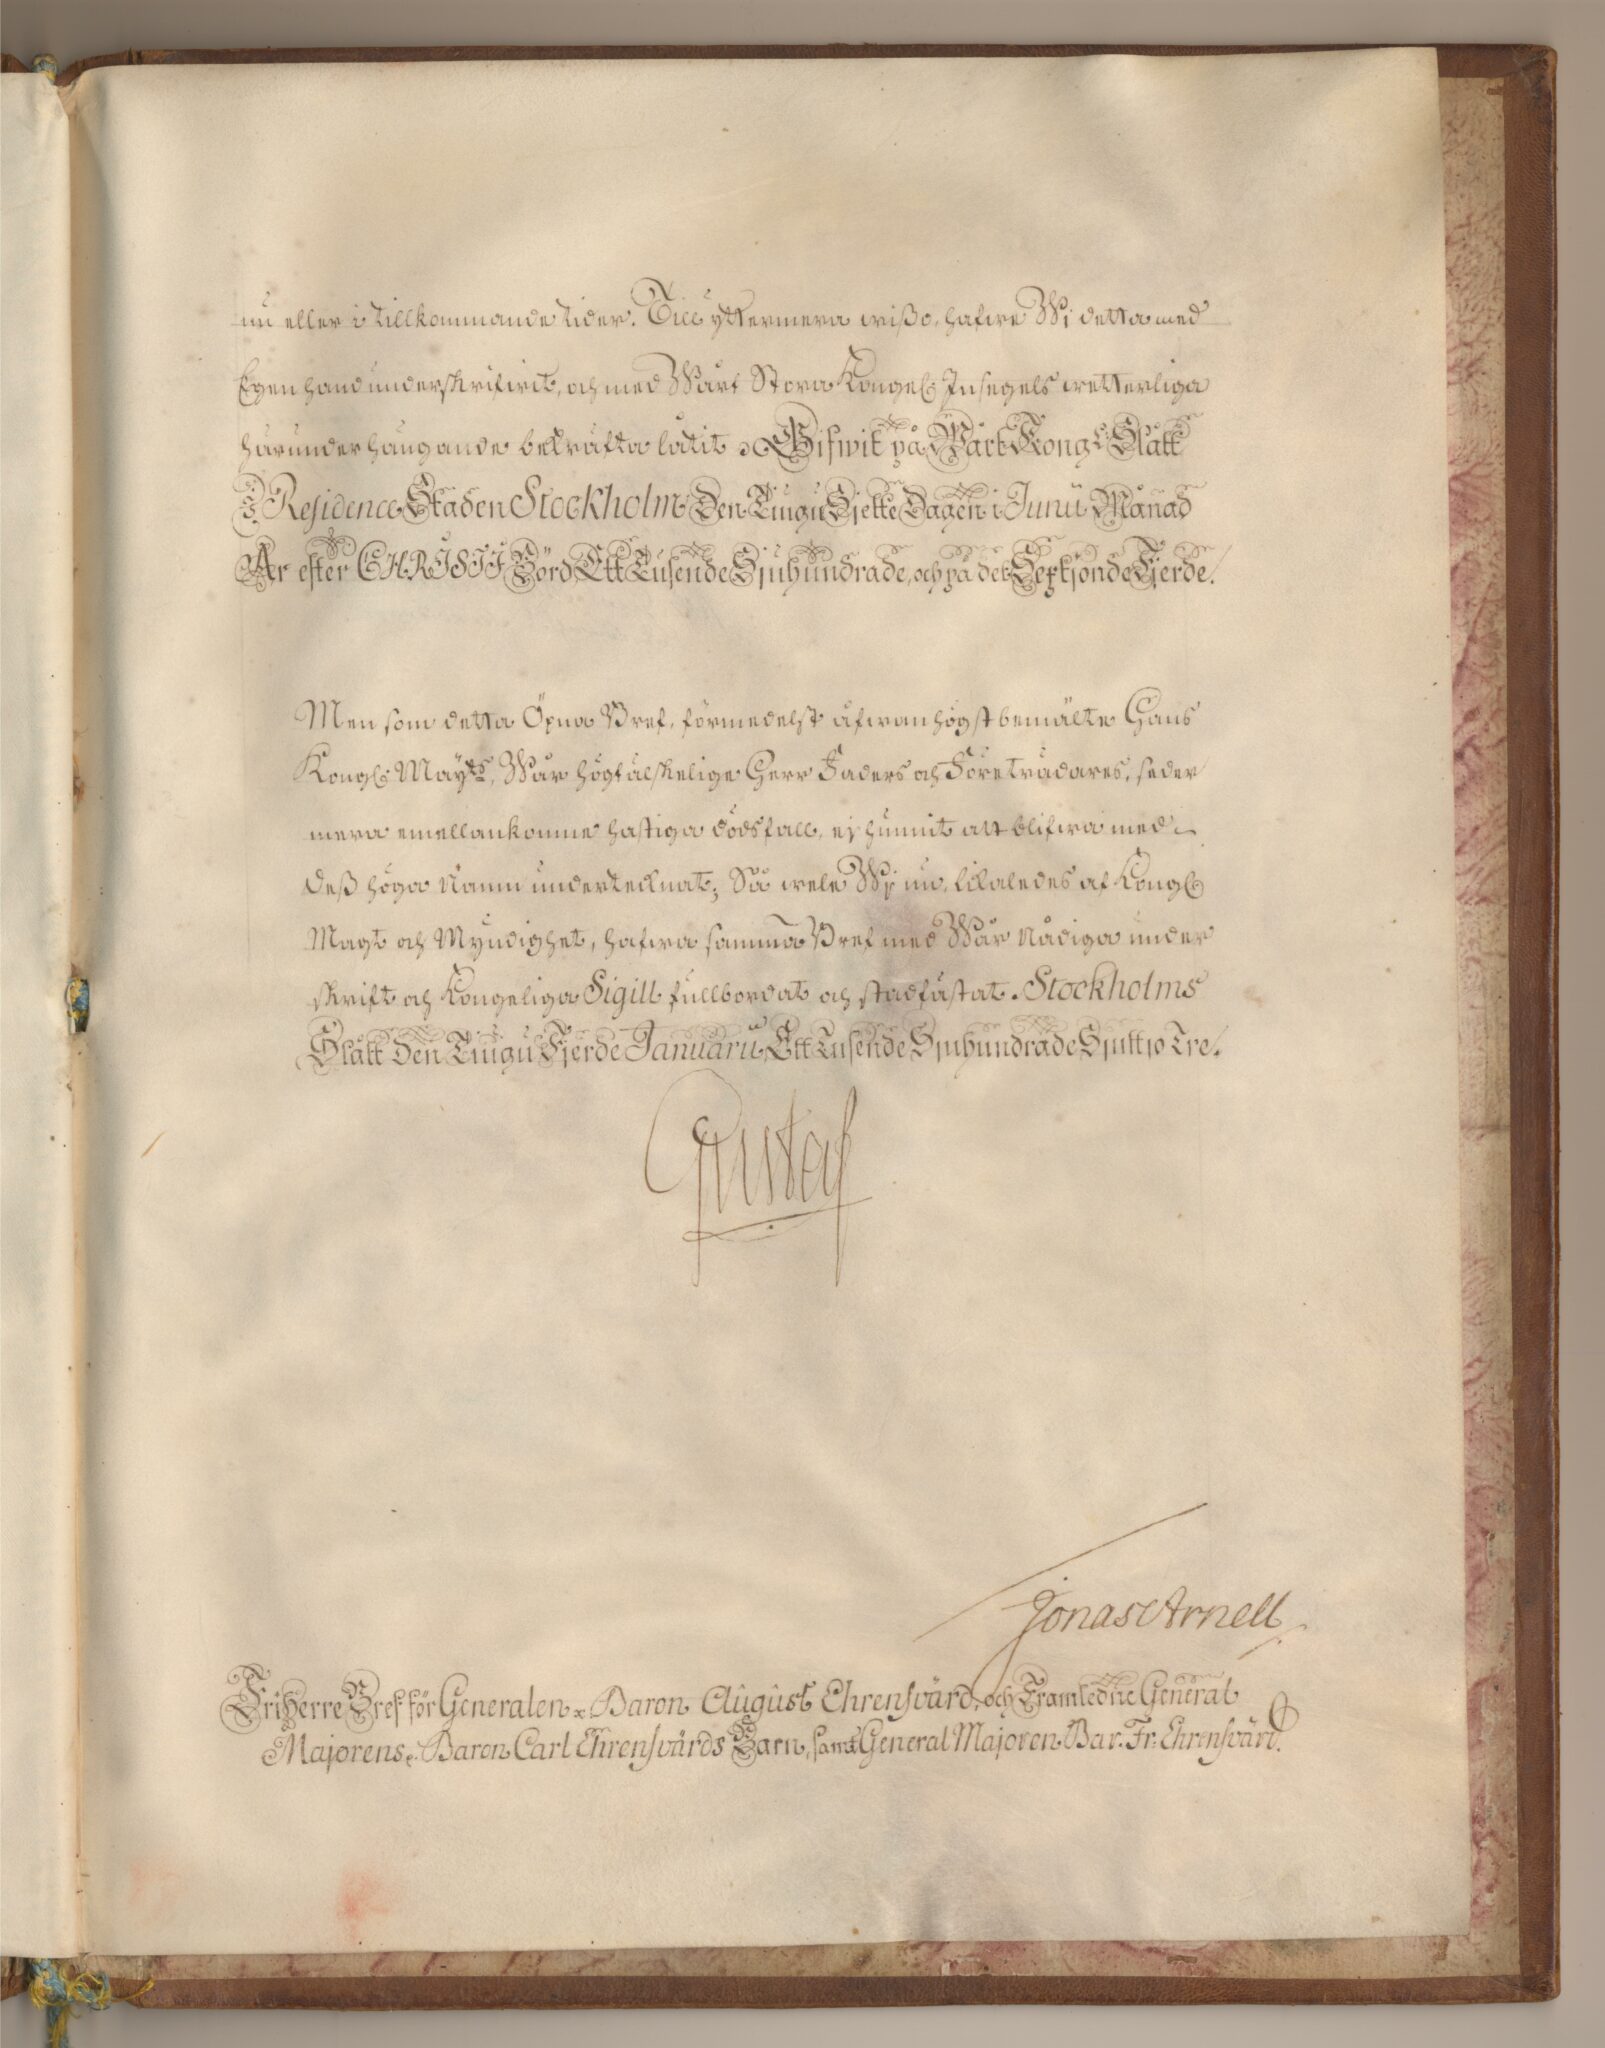 nu eller i tillkommande tider. Till yttermera wißo, hafwe Wj detta med
Egen hand underskrifwit, och med Wårt Stora Kongl: Insegels wetterliga
härunder hängande bekräfta låtit. Gifwit på Wårt Kongl: Slått
I Residence Staden Stockholm Den Tiugu Sjette Dagen i Junii Månad
År efter CHRISTI Börd, Ett Tusende Sjuhundrade, och på det Sextjonde Fjerde.
Men som detta Öpna Bref, förmedelst åfwanhögstbemälte Hans
Kongl: Maÿts, Wår högtälskelige Herr Faders och Företrädares, seder
mera emellankomne hastiga dödsfall, ej hunnit att blifwa med
deß höga Namn undertecknat; Så wele Wj nu, likaledes af Kongl:
Magt och Myndighet, hafwa samma Bref med Wår Nådiga under
skrift och Kongeliga Sigill fullbordat och stadfästat. Stockholms
Slått den Tiugu Fjerde Januarii, Ett Tusende Sjuhundrade Sjuttjo Tre.
Gustaf
Jonas Arnell
FriHerre Bref för Generalen &. Baron August Ehrensvärd, och Framledne General
Majorens &. Baron Carl Ehrensvärds Barn, samt General Majoren Bar. Fr. Ehrensvärd.